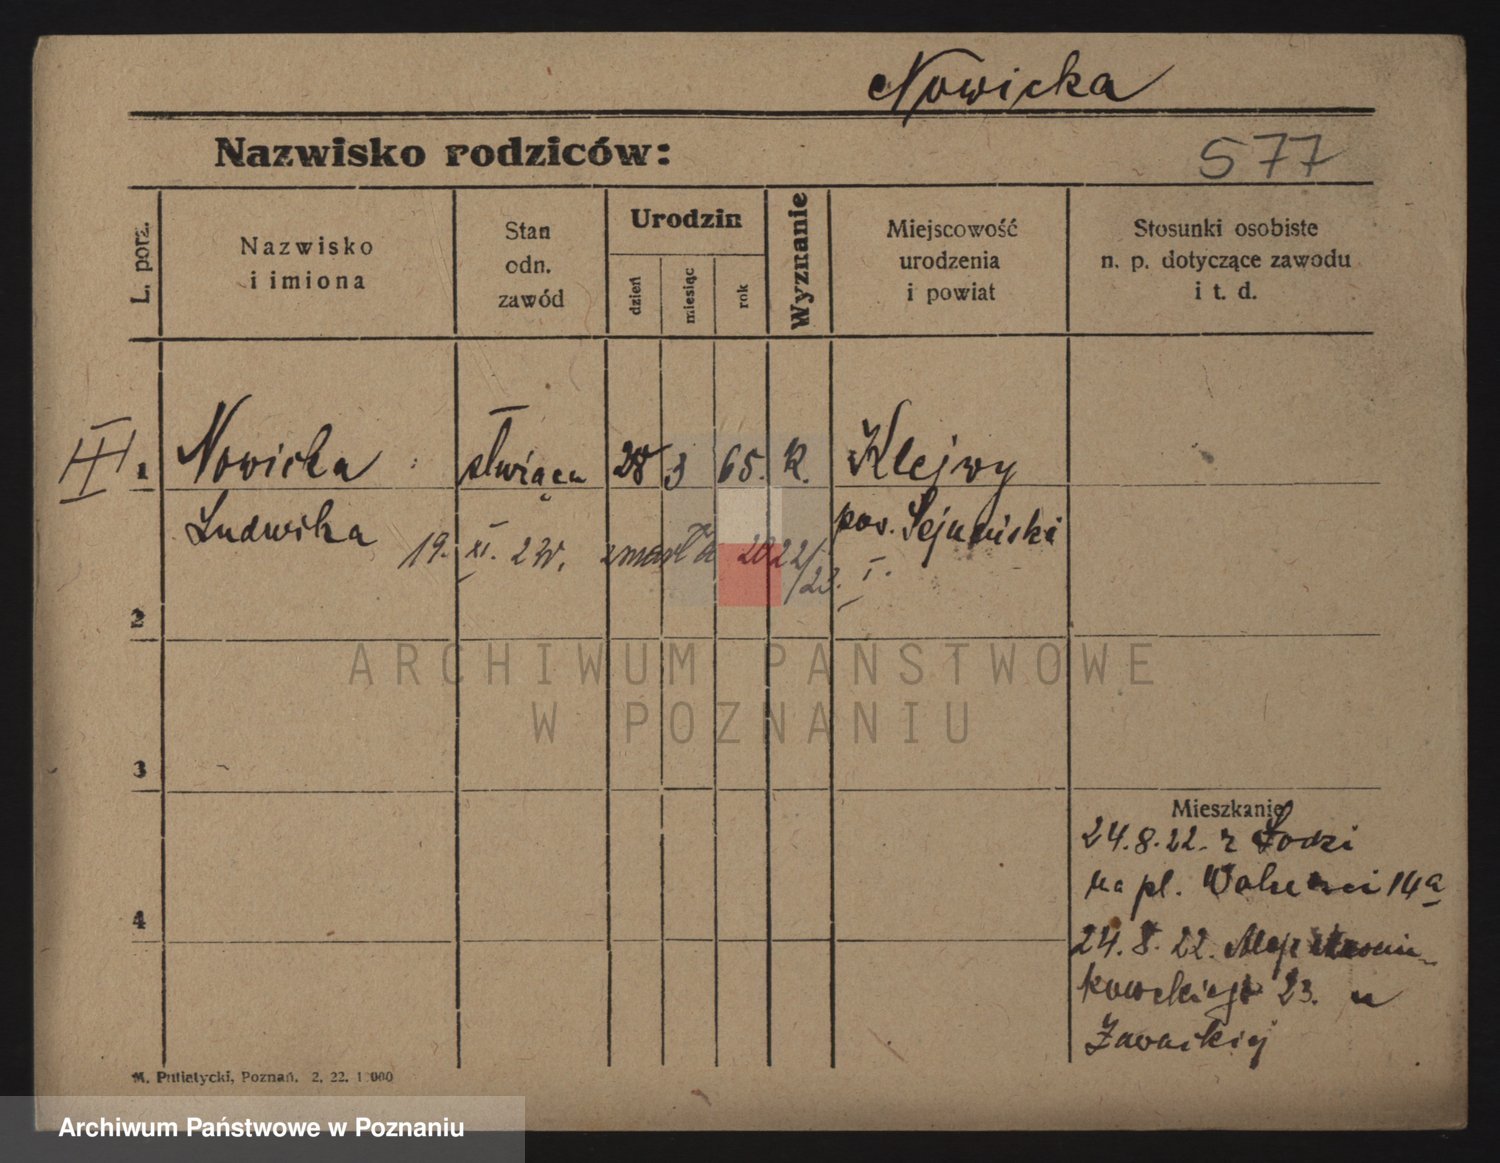 Nowicka
577
Nazwisko rodziców:
L. porz.
Nazwisko
i imiona
Stan
odn.
zawód
Urodzin
dzień
miesiąc
rok
Wyznanie
Miejscowość
urodzenia
i powiat
Stosunki osobiste
n. p. dotyczące zawodu
i t. d.
III
1
Nowicka
służąca
28 3 65. k.
Klejwy
Ludwika
pow. Sejneński
19. XI. 22. zmarła
23. I.
2
ARCHIWUM PAŃSTWOWE
W POZNANIU
3
Mieszkanie
24.8.22. z Łodzi
na pl. 14a
4
24.8.22. Alej
23. u
M. Putiatycki, Poznań. 2. 22.
Archiwum Państwowe w Poznaniu